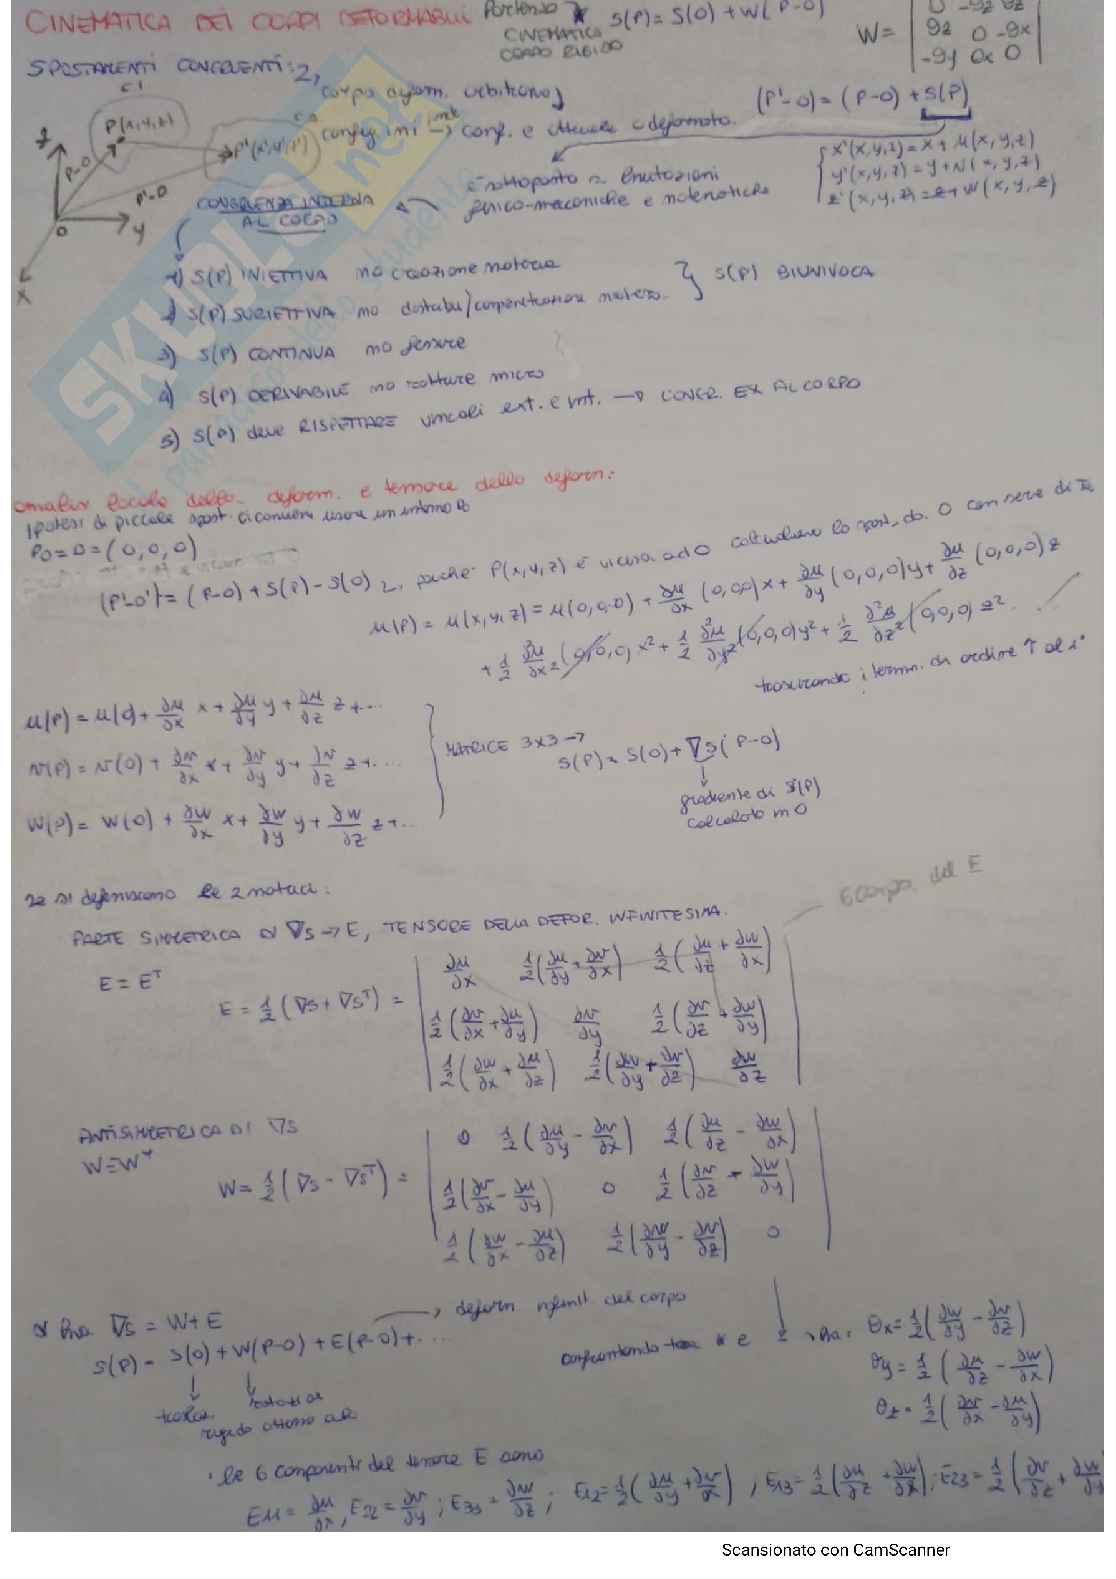 CINEMATICA DEI CORPI DEFORMABILI Partendo * S(P) = S(O) + W(P-O)
CINEMATICA
CORPO RIGIDO
W = | 0 -θz θy
θz 0 -θx
-θy θx 0 |
SPOSTAMENTI CONGRUENTI:
corpo deform. arbitrario
(P'-O) = (P-O) + S(P)
config. ini → conf. e attuale o deformata.
C1
P(x,y,z)
P'(x',y',z')
P-O
P'-O
z
y
x
O
x'(x,y,z) = x + u(x,y,z)
y'(x,y,z) = y + v(x,y,z)
z'(x,y,z) = z + w(x,y,z)
è sottoposto a limitazioni
fisico-meccaniche e matematiche
CONGRUENZA INTERNA
AL CORPO
1) S(P) INIETTIVA no creazione materia
2) S(P) SURIETTIVA no distribu/compenetrazione materia. } S(P) BIUNIVOCA
3) S(P) CONTINUA no fessure
4) S(P) DERIVABILE no rotture micro
5) S(P) deve RISPETTARE vincoli ext. e int. → CONGR. EX AL CORPO
analisi locale della deform. e tensore della deform:
Ipotesi di piccoli spost. ci conviene usare un intorno
P0 = O = (0,0,0)
(P'-O') = (P-O) + S(P) - S(O) poiché P(x,y,z) è vicino ad O calcoliamo lo spost. da O con serie di
u(P) = u(x,y,z) = u(0,0,0) + ∂u/∂x (0,0,0)x + ∂u/∂y (0,0,0)y + ∂u/∂z (0,0,0) z
+ 1/2 ∂²u/∂x² (0,0,0) x² + 1/2 ∂²u/∂y² (0,0,0)y² + 1/2 ∂²u/∂z² (0,0,0) z²
trascurando i termini di ordine ↑ al 1°
u(P) = u(O) + ∂u/∂x x + ∂u/∂y y + ∂u/∂z z + ...
v(P) = v(O) + ∂v/∂x x + ∂v/∂y y + ∂v/∂z z + ...
w(P) = w(O) + ∂w/∂x x + ∂w/∂y y + ∂w/∂z z + ...
MATRICE 3x3 →
S(P) = S(O) + ∇S (P-O)
gradiente di S(P)
calcolato in O
si definiscono le 2 matrici:
6 comp. del E
PARTE SIMMETRICA DI ∇S → E, TENSORE DELLA DEFOR. INFINITESIMA.
E = E^T
E = 1/2 (∇S + ∇S^T) = | ∂u/∂x 1/2(∂u/∂y + ∂v/∂x) 1/2(∂u/∂z + ∂w/∂x)
1/2(∂v/∂x + ∂u/∂y) ∂v/∂y 1/2(∂v/∂z + ∂w/∂y)
1/2(∂w/∂x + ∂u/∂z) 1/2(∂w/∂y + ∂v/∂z) ∂w/∂z |
ANTISIMMETRICA DI ∇S
W = 1/2 (∇S - ∇S^T) = | 0 1/2(∂u/∂y - ∂v/∂x) 1/2(∂u/∂z - ∂w/∂x)
1/2(∂v/∂x - ∂u/∂y) 0 1/2(∂v/∂z - ∂w/∂y)
1/2(∂w/∂x - ∂u/∂z) 1/2(∂w/∂y - ∂v/∂z) 0 |
si ha ∇S = W + E → deform infinit del corpo
S(P) = S(O) + W(P-O) + E(P-O) + ...
rigido attorno ad
confrontando * e si ha:
θx = 1/2(∂w/∂y - ∂v/∂z)
θy = 1/2(∂u/∂z - ∂w/∂x)
θz = 1/2(∂v/∂x - ∂u/∂y)
· le 6 componenti del tensore E sono
E11 = ∂u/∂x, E22 = ∂v/∂y; E33 = ∂w/∂z; E12 = 1/2(∂u/∂y + ∂v/∂x), E13 = 1/2(∂u/∂z + ∂w/∂x); E23 = 1/2(∂v/∂z + ∂w/∂y
SKUOLA.net
Scansionato con CamScanner